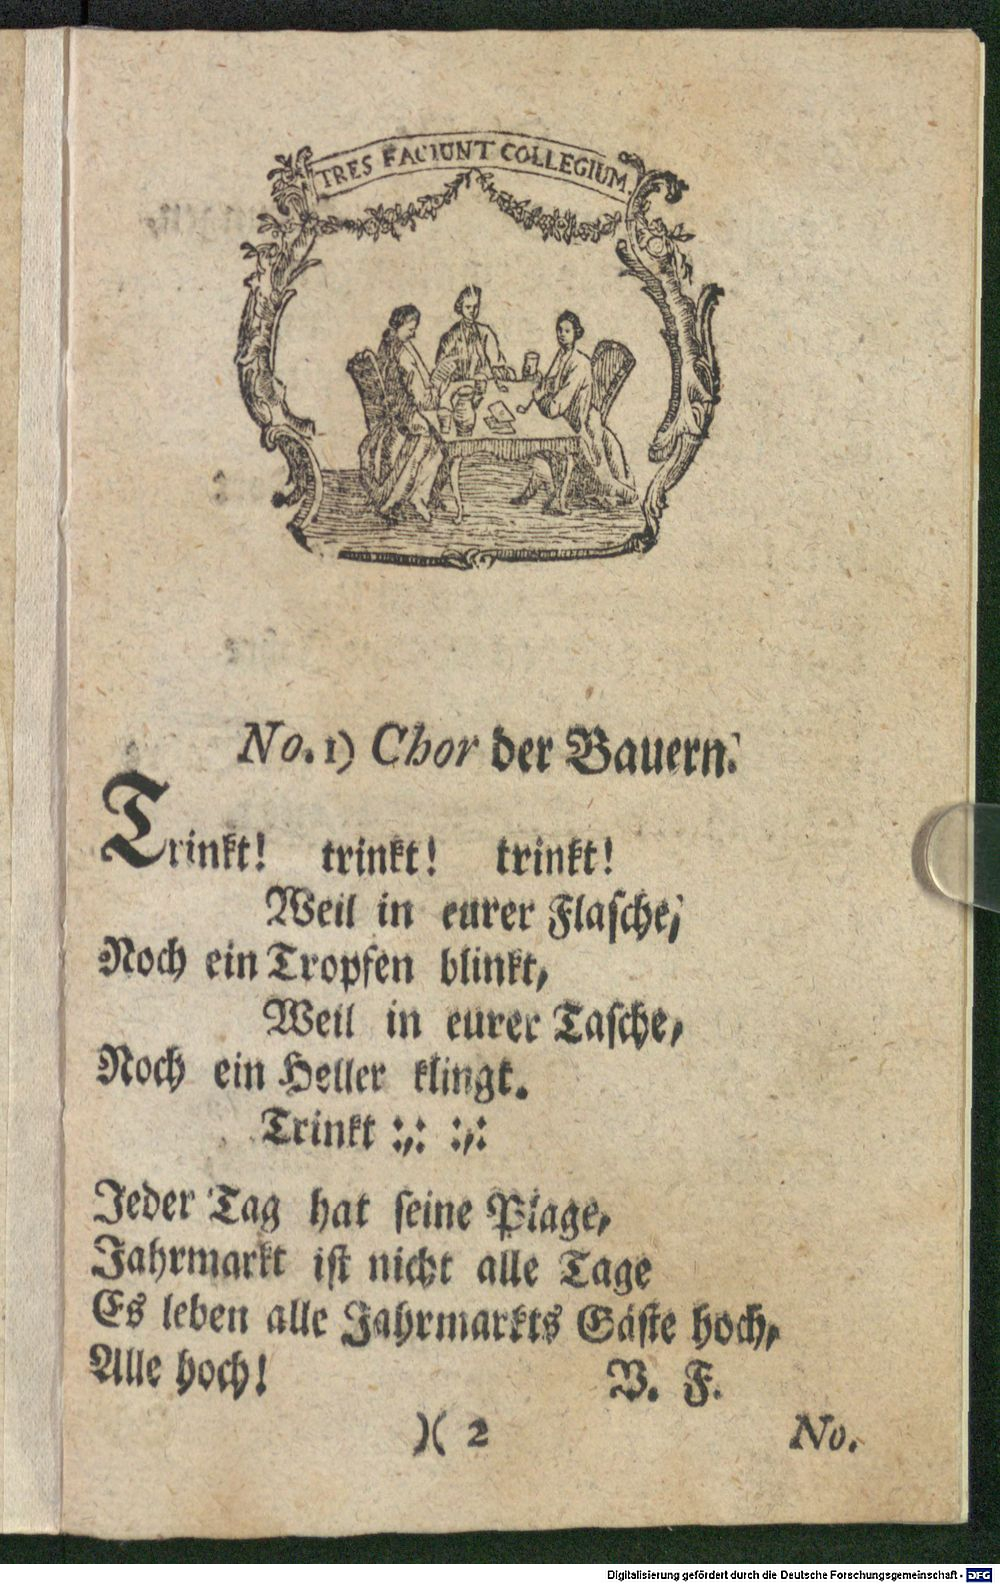 TRES FACIUNT COLLEGIUM.
No. 1) Chor der Bauern.
Trinkt! trinkt! trinkt!
Weil in eurer Flaſche,
Noch ein Tropfen blinkt,
Weil in eurer Taſche,
Noch ein Heller klingt.
Trinkt :,: :,:
Jeder Tag hat ſeine Plage,
Jahrmarkt iſt nicht alle Tage
Es leben alle Jahrmarkts Gäſte hoch,
Alle hoch! V. F.
)( 2 No.
Digitalisierung gefördert durch die Deutsche Forschungsgemeinschaft - DFG